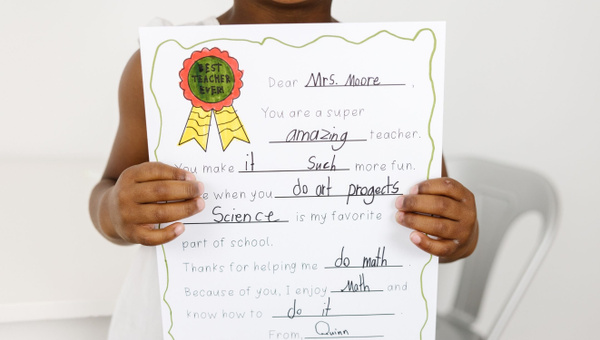 BEST
TEACHER
EVER!
Dear Mrs. Moore,
You are a super
amazing teacher.
You make it such more fun.
when you do art progects
Science is my favorite
part of school.
Thanks for helping me do math
Because of you, I enjoy Math and
know how to do it
From, Quinn